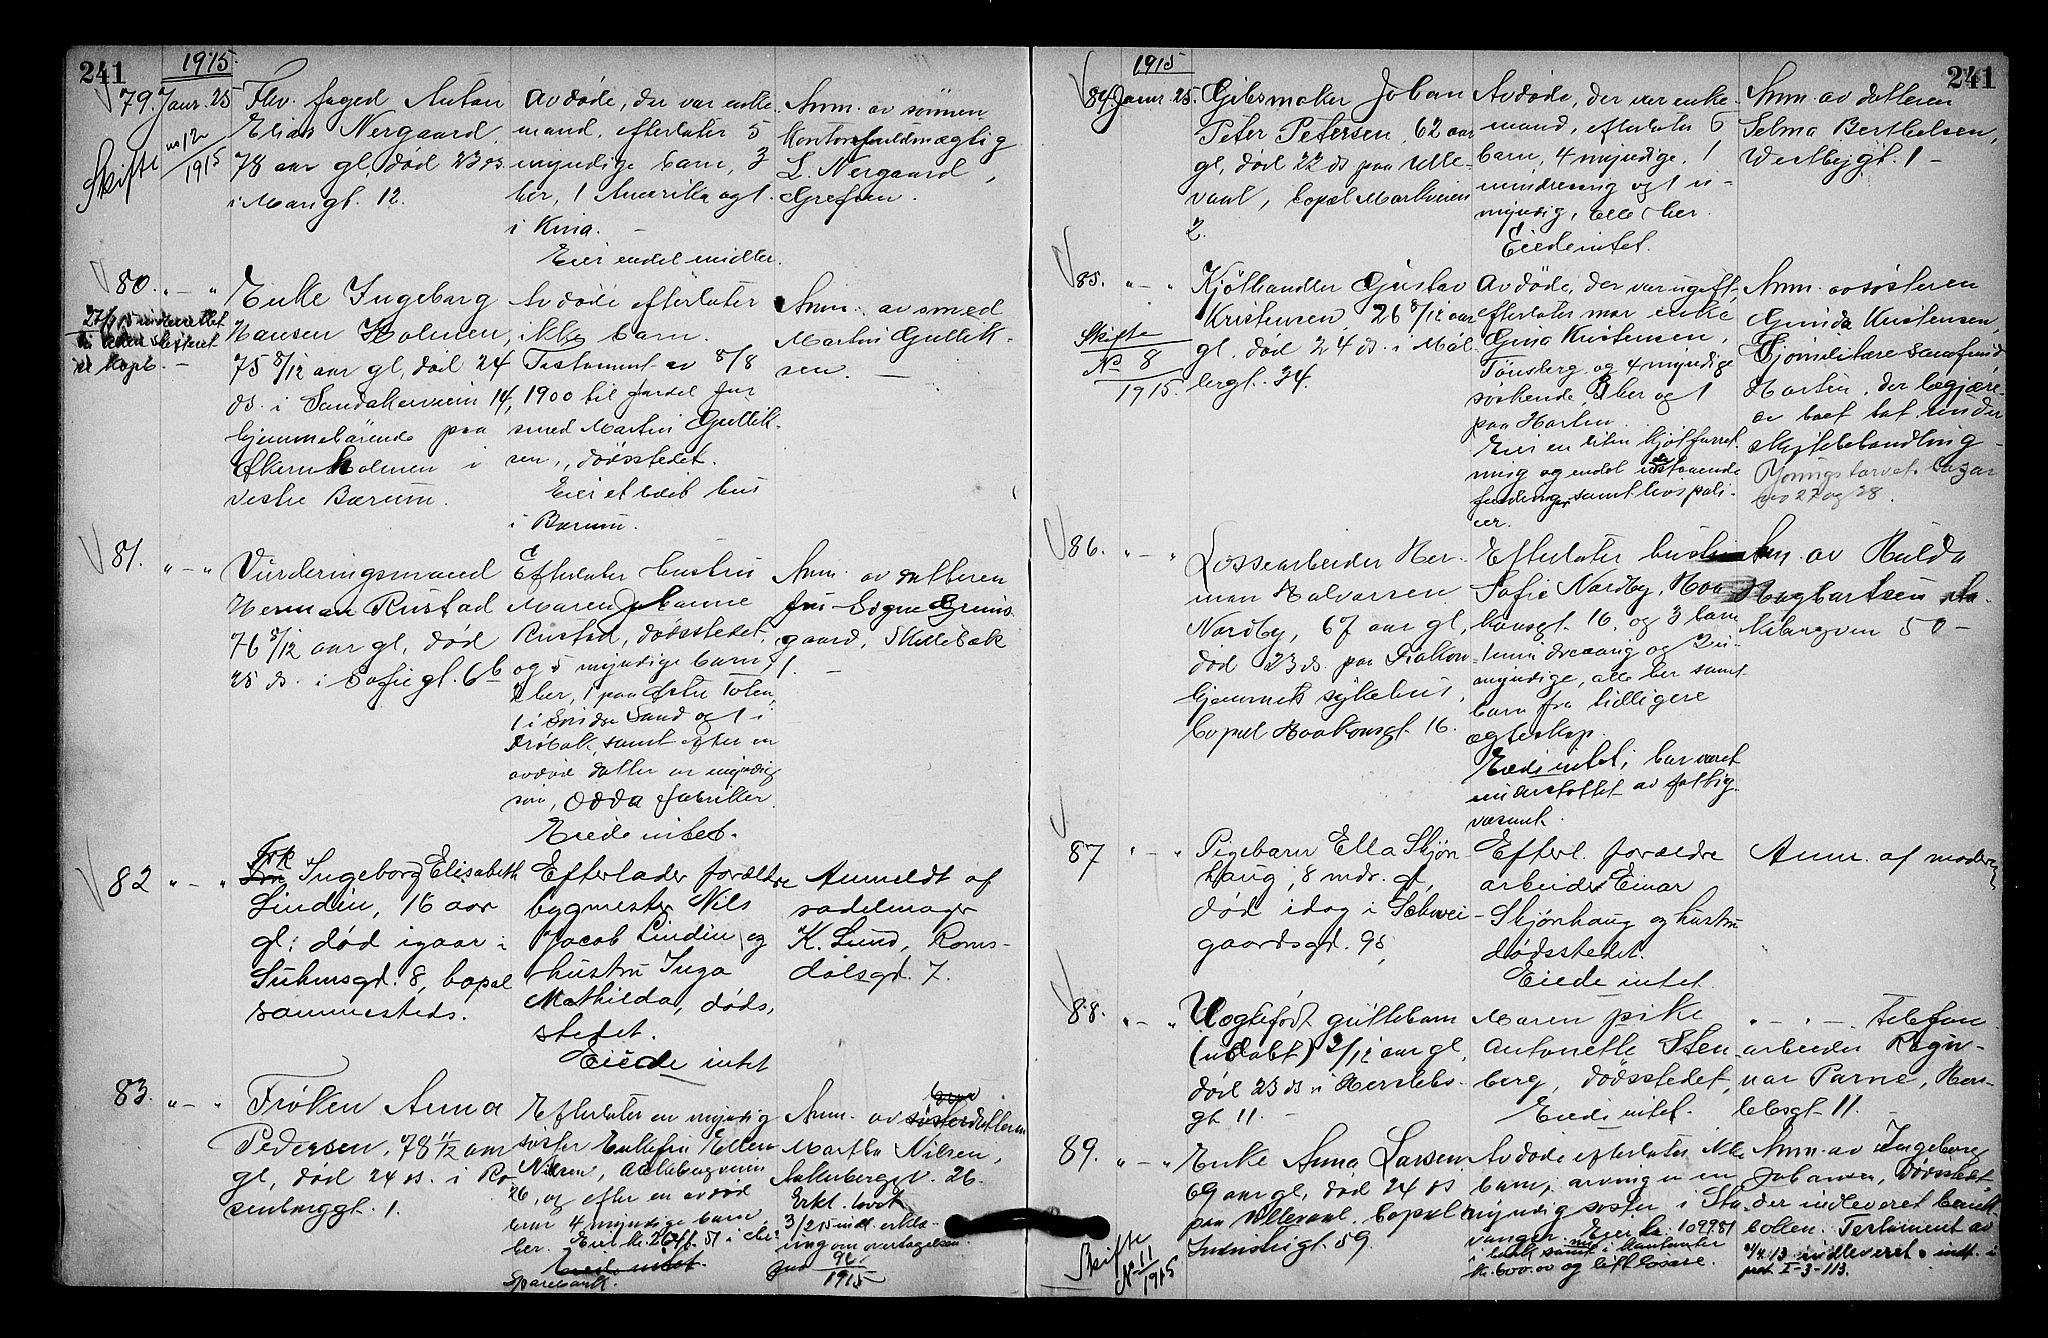 241
1915
79. Januar. 25
Skifte no 12 1915
Fhv. foged Anton
Elias Nergaard,
78 aar gl, død 23 ds.
i Marigt. 12.
Avdøde, der var enke-
mand, efterlater 5
myndige barn, 3
her, 1 Amerika og 1
i Kina. —
Eier endel midler.
Anm. av sønnen
Kontorfuldmægtig
L. Nergaard,
Grefsen.
80. " — "
Enke Ingeborg
Hansen Holmen,
75 8/12 aar gl, død 24
ds. i Sandakerveien 14,
hjemmehørende paa
holmen i
vestre Bærum.
Avdøde efterlater
ikke barn.
Testament av 8/8
1900 til fordel for
smed Martin Gullik-
sen, dødsstedet.
Eier et litet hus
i Bærum.
Anm. av smed
Martin Gullik-
sen. —
81. " — "
Vurderingsmand
Herman Rustad
76 8/12 aar gl, død
25 ds. i Sofiegt. 6b
Efterlater hustru
Maren Johanne
Rustad, dødsstedet,
og 5 myndige barn,
2 her, 1 paa Østre Toten,
1 i Søndre Sand og 1 i
Drøbak, samt efter en
avdød datter en myndig
søn, Odda fabrikker.
Eiede intet.
Anm. av datteren
fru Signe Grims-
gaard, Skillebæk
1. —
82 " — "
Frk
Ingeborg Elisabeth
Lindin, 16 aar
gl; død igaar i
Suhmsgd. 8, bopæl
sammesteds.
Efterlader forældre
bygmester Nils
Jacob Lindin og
hustru Inga
Mathilda, døds-
stedet.
Eiede intet
Anmeldt af
sadelmager
K. Lund, Roms-
dalsgd. 7.
83. " — "
Frøken Anna
Pedersen, 78 11/12 aar
gl, død 24 ds. i Ro-
senborggt. 1.
Efterlater en myndig
søster Enkefru Ellen
Nilsen, Akersbergveien
26, og efter en avdød
bror 4 myndige barn
her. Eier kr. 2644.51 i chr.
Eiede intet.
Sparebank.
bror
Anm. av søsterdatteren
Martha Nilsen,
Akersbergv. 26.
Erkl. lovet
3/2 15 indl. erklæ-
ring om overtagelsen.
96/1915
241
1915
84 Januar 25.
Gibsmaker Johan
Peter Petersen, 62 aar
gl, død 22 ds paa Ulle-
vaal, bopæl Markveien
2.
Avdøde, der var enke-
mand, efterlater 6
barn, 4 myndige, 1
mindreaarig og 1 u-
myndig, alle her.
Eiede intet.
Anm. av datteren
Selma Berthelsen,
Vestbygt. 1 —
85. " — "
Skifte
No 8
1915.
Kjøthandler Gustav
Kristensen, 26 8/12 aar
gl, død 24 ds. i Møl-
lergt. 34.
Avdøde, der var ugift,
efterlater mor enke
Gina Kristensen,
Tønsberg og 4 myndige
søskende, 3 her og 1
paa Horten.
Eier en liten kjøtforret-
ning og endel utestaaende
fordringer samt livspoli-
cer.
Anm. av søsteren
Gunda Kristensen,
Gjømilitære samfund
Horten, der begjærer
av boet tat under
skiftebehandling —
Youngstorvet basar
no 27 og 28.
86. " — "
Lossearbeider Her-
man Halvorsen
Nordby, 67 aar gl,
død 23 ds. paa Diakon-
hjemmets sykehus,
bopæl Haakonsgt. 16.
Efterlater hustru
Sofie Nordby, Haa-
konsgt. 16, og 3 barn
1 mindreaarig og 2 u-
myndige, alle her samt
barn fra tidligere
egteskap.
Eiede intet, har været
understøttet av fattig-
væsenet.
Anm. av Hulda
Hagbartsen,
50 —
87 " — "
Pigebarn Ella Skjøn-
haug, 8 mdr. gl,
død idag i Schwei-
gaardsgd. 95,
Efterl. forældre
arbeider Einar
Skjønhaug og hustru
dødsstedet.
Eiede intet.
Anm. af moderen
88. " — "
Uegtefødt guttebarn
(udøbt) 2/12 aar gl,
død 23 ds i Herslebs-
gt 11. —
Moren pike
Antonette Sten-
berg, dødsstedet,
Eiede intet.
" — " — telefon-
arbeider Ragn-
var Parne, Hers-
lebsgt. 11. —
89. " — "
Skifte
No 11
1915
Enke Anna Larsen
69 aar gl, død 24 ds
paa Ullevaal, bopæl
Industrigt. 59.
Avdøde efterlater ikke
barn, arving er en
myndig søster i Sta-
vanger. Eier kr. 1099 51
i bank samt i kontanter
kr. 600.00 og litt løsøre.
Anm. av Ingeborg
Johansen, dødsstedet
der indleveret bank-
boken. Testament av
4/4 13 indleveret, indt. i
prot. I-3-113.